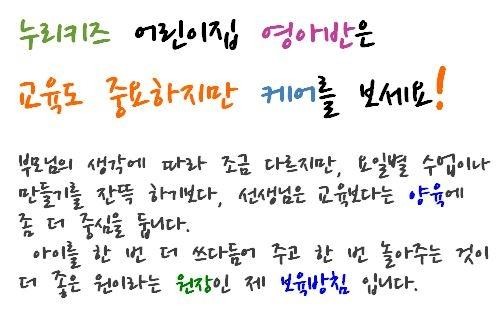 누리키즈 어린이집 영아반은
교육도 중요하지만 케어를 보세요!
부모님의 생각에 따라 조금 다르지만, 요일별 수업이나
만들기를 잔뜩 하기보다, 선생님은 교육보다는 양육에
좀 더 중심을 둡니다.
아이를 한 번 더 쓰다듬어 주고 한 번 놀아주는 것이
더 좋은 원이라는 원장인 제 보육방침 입니다.